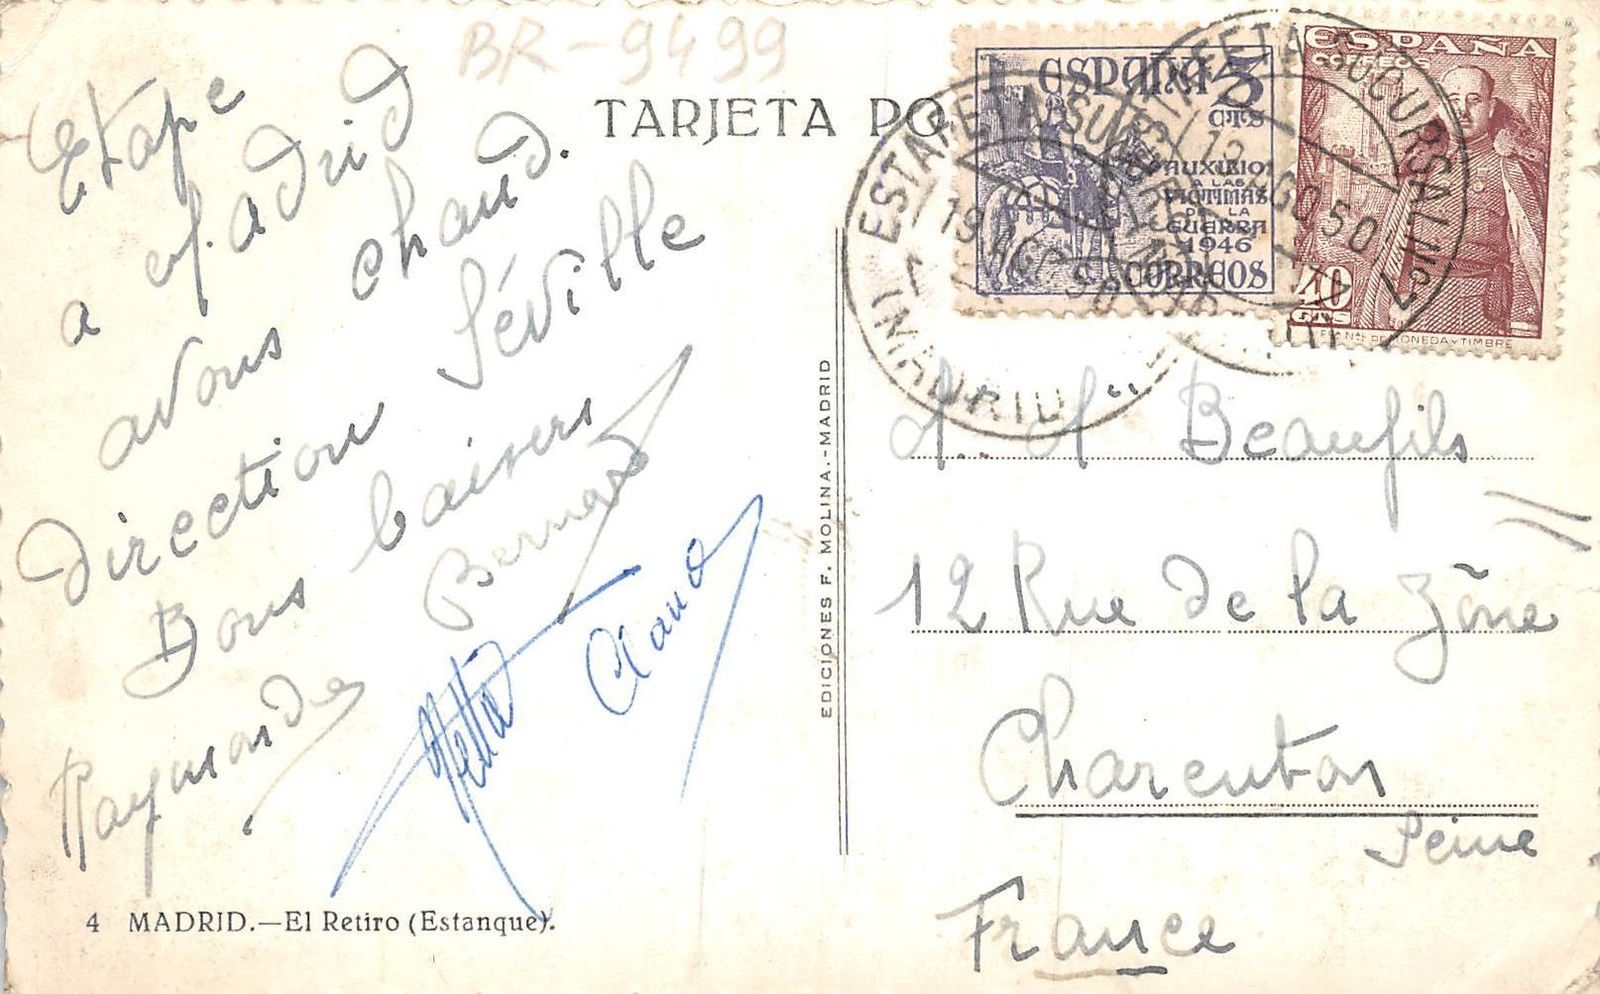 BR-9499
TARJETA PO
Etape
a Madrid
avons chaud.
direction Séville
Bons baisers
Bernard
Raymonde
Claud
4 MADRID.—El Retiro (Estanque).
EDICIONES F. MOLINA.-MADRID
ESPAÑA 5
CTS
AUXILIO
A LAS
VICTIMAS
DE LA
GUERRA
1946
CORREOS
ESPAÑA
CORREOS
40
CTS
ESTAFETA SUCURSAL
19 AGO 50
MADRID
ESTAFETA SUCURSAL Nº
AGO 50
M. M Beaufils
12 Rue de la Zône
Charenton
Seine
France